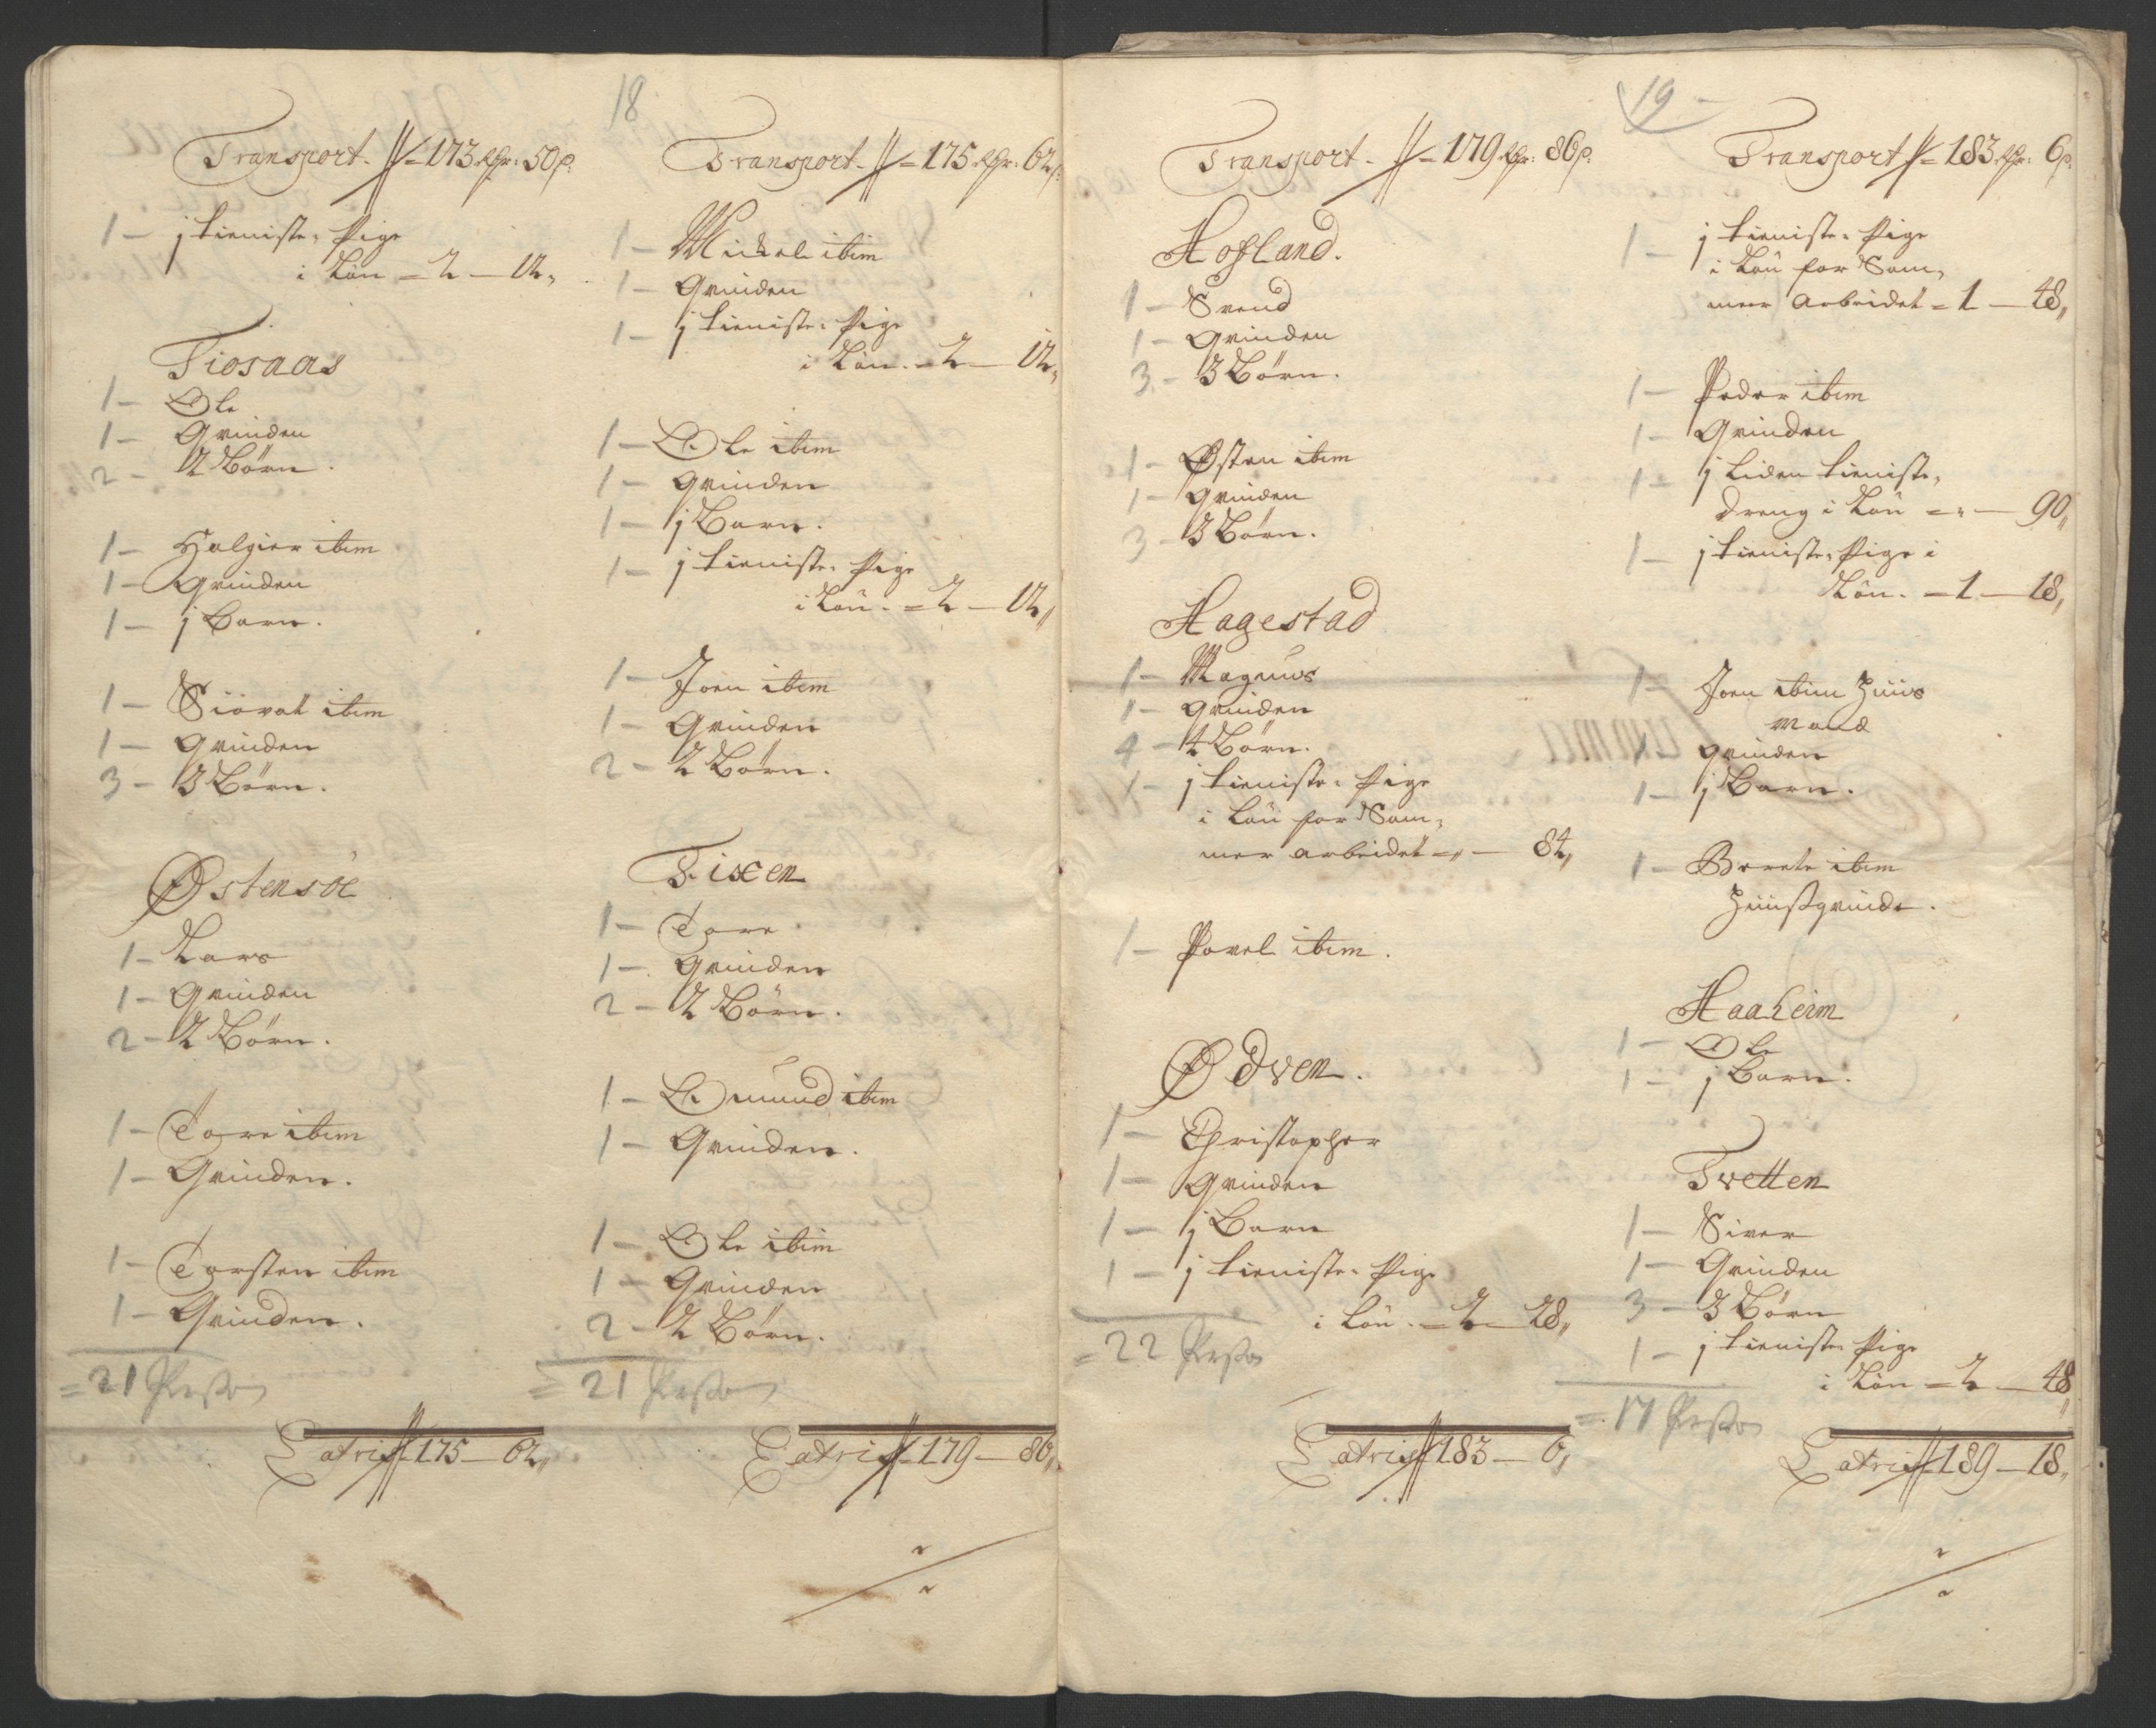 18
Transport - 173 Rdr: 50 ß:
1 - j tieniste Pige
i Lön = 2 - 12,,
Tiosaas
1 - Ole
1 - Qvinden
2 - 2 Börn.
1 - Halgier ibm
1 - Qvinden
1 - j Barn.
1 - Siovat ibm
1 - Qvinden
3 - 3 Börn.
Østensöe
1 - Lars
1 - Qvinden
2 - 2 Börn.
1 - Tore ibm
1 - Qvinden.
1 - Torsten ibm
1 - Qvinden.
= 21 Perso
Latris 175 - 62,,
Transport - 175 Rdr: 62 ß:
1 - Mickel ibm
1 - Qvinden
1 - j tieniste Pige
i Lön. = 2 - 12,,
1 - Ole ibm
1 - Qvinden
1 - j Barn.
1 - j tieniste Pige
i Lön. = 2 - 12,,
1 - Joen ibm
1 - Qvinden
2 - 2 Börn.
Fixen
1 - Tore
1 - Qvinden
2 - 2 Börn.
1 - Omund ibm
1 - Qvinden.
1 - Ole ibm
1 - Qvinden
2 - 2 Börn.
= 21 Perso
Latris 179 - 86,,
19
Transport - 179 Rdr: 86 ß:
Hofland.
1 - Svend
1 - Qvinden
3 - 3 Börn.
1 - Østen ibm
1 - Qvinden
3 - 3 Börn.
Hagestad
1 - Magnus
1 - Qvinden
4 - 4 Börn.
1 - j tieniste Pige
i Lön for Som,
mer arbeidet = ,, - 84,,
1 - Povel ibm.
Ødven.
1 - Christopher
1 - Qvinden
1 - j Barn
1 - j tieniste Pige
i Lön. = 2 - 28,,
= 22 Perso
Latris 183 - 6,
Transport - 183 Rdr: 6 ß:
1 - j tieniste Pige
i Lön for Som,
mer Arbeidet = 1 - 48,,
1 - Peder ibm
1 - Qvinden
1 - j Liden tieniste,
dreng i Lön = ,, - 90,,
1 - j tieniste Pige i
Lön. = 1 - 18,
1 - Joen ibm Huus
mand
1 - Qvinden
1 - j Barn.
1 - Berete ibm
Huusqvinde.
Haaheim
1 - Ole
1 - j Barn.
Tvetten
1 - Siver
1 - Qvinden
3 - 3 Börn
1 - j tieniste Pige
i Lön = 2 - 48,,
= 17 Perso
Latris 189 - 18,,